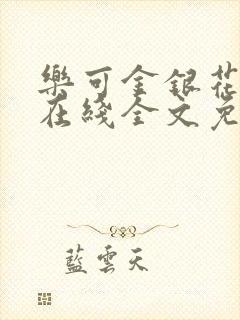 樂可金銀花
在綫全文免
藍雲天